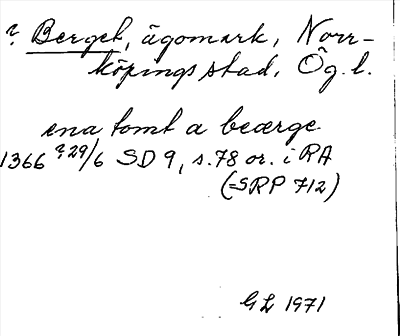 ? Berget, ägomark, Norr-
köpings stad, Ög. l.
ena tomt a beærge
1366 ?29/6 SD 9, s.78 or. i RA
(=SRP 712)
GL 1971